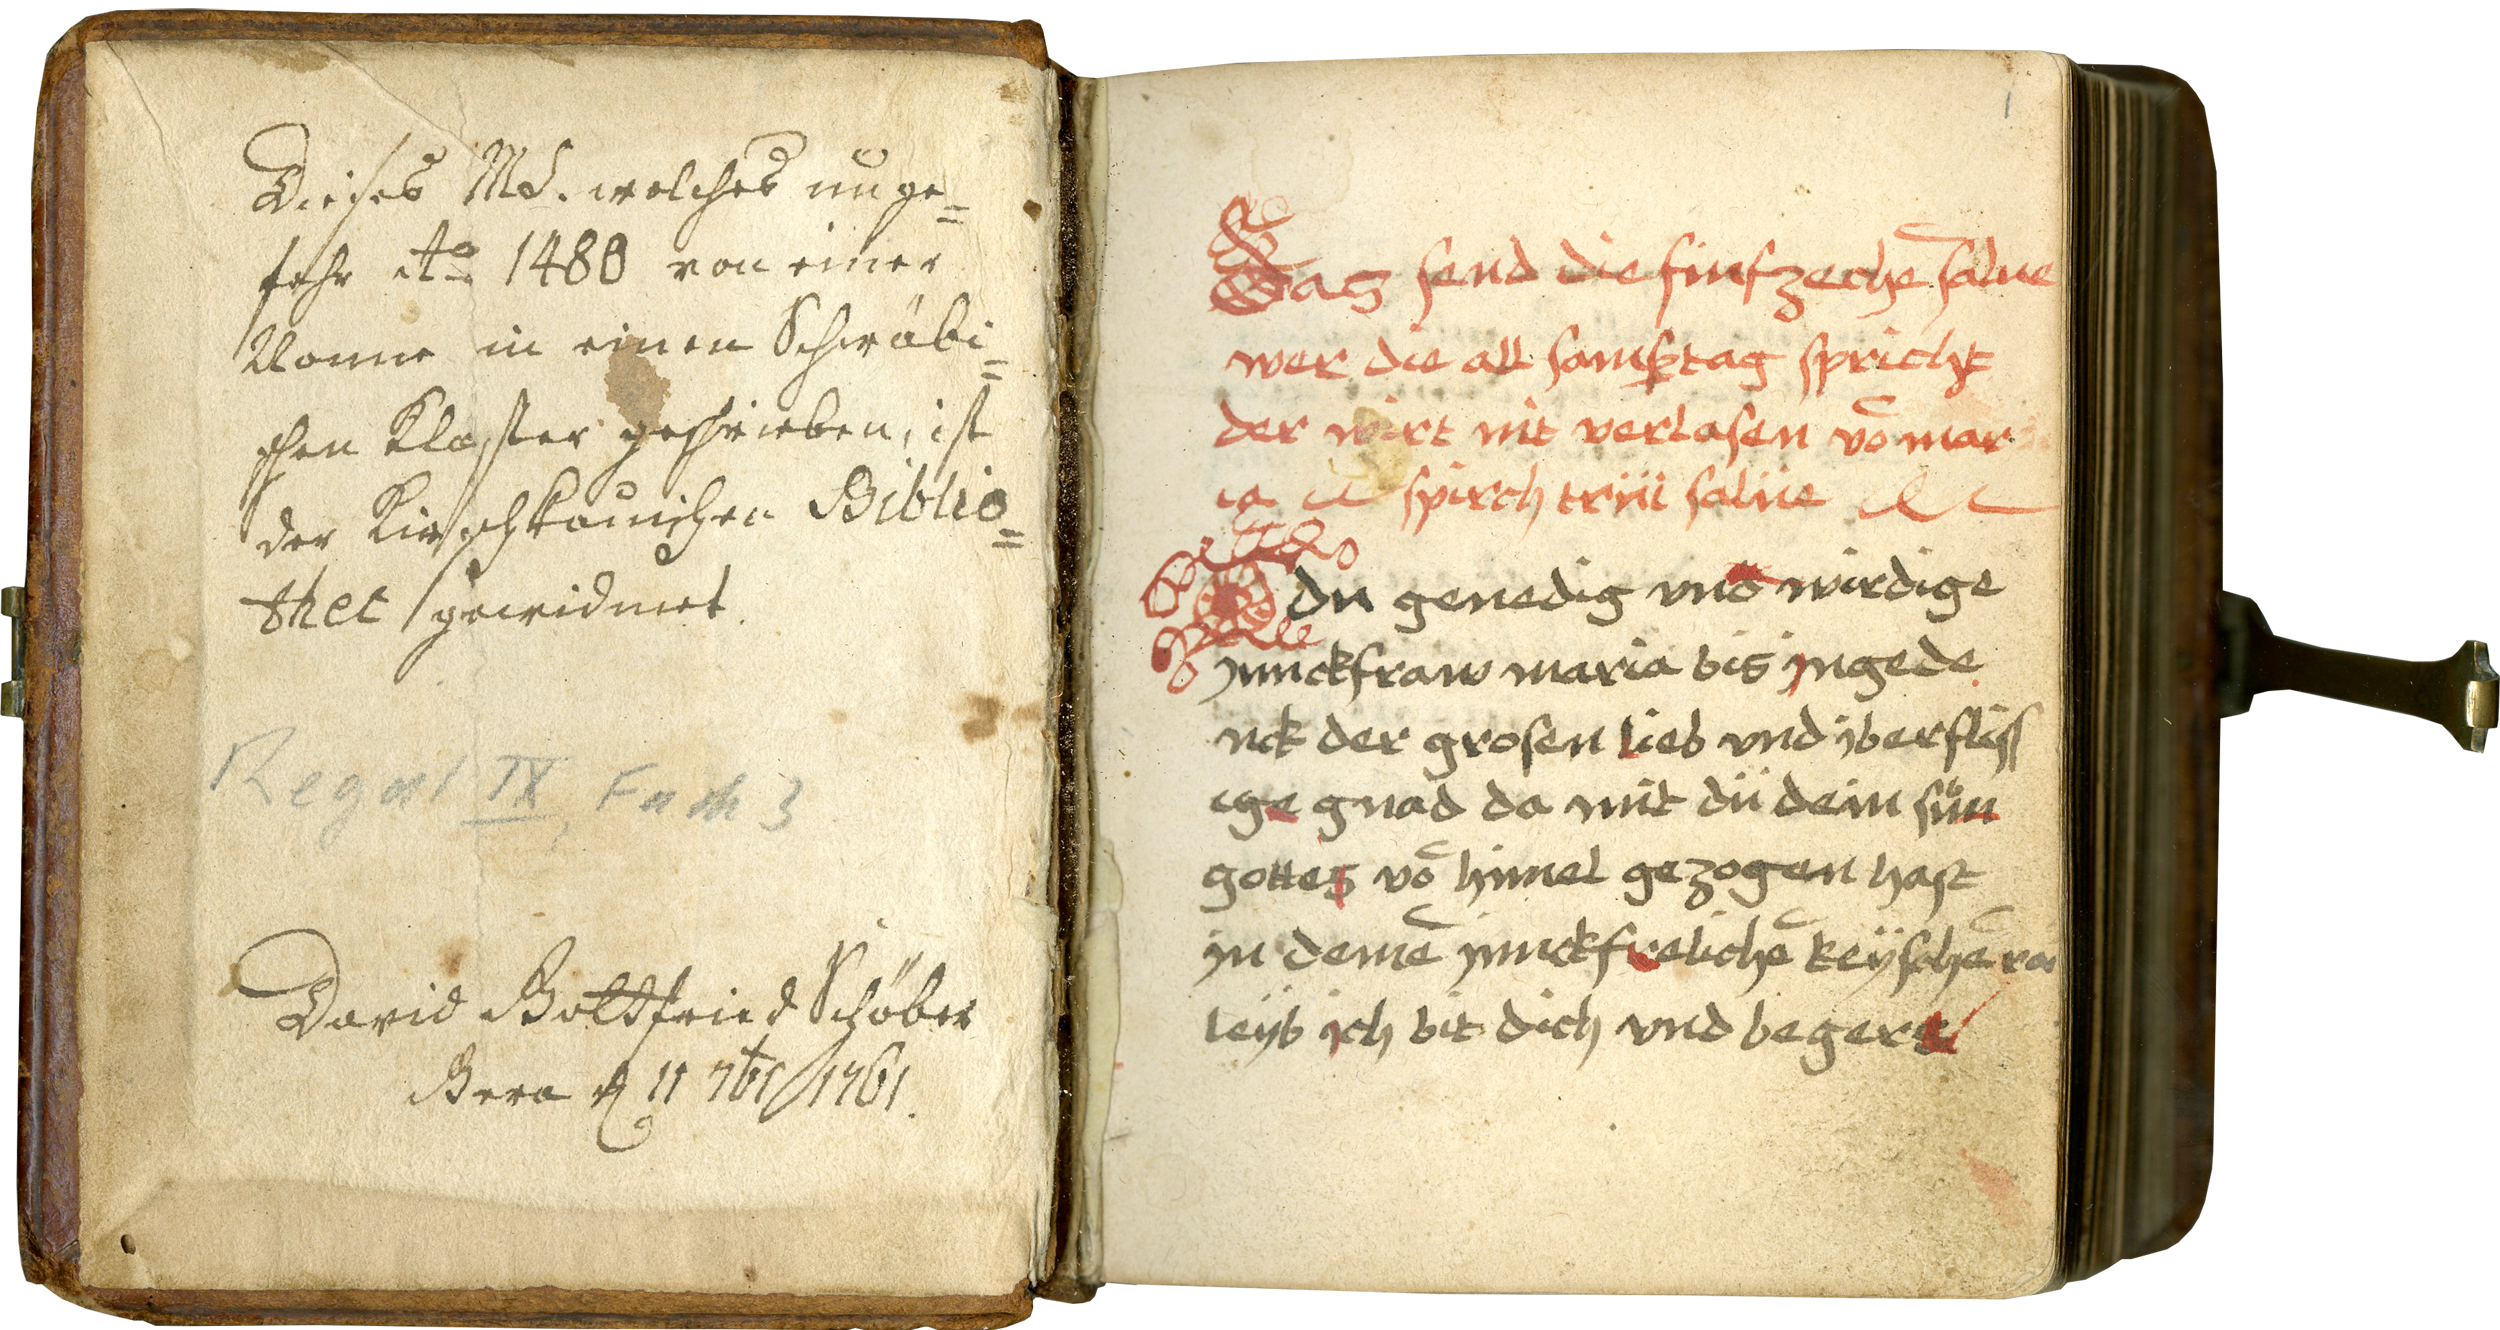 Dieses Ms. welches unge=
fehr Ao 1480 von einer
Nonne in einen Schwäbi=
schen Kloster geschrieben, ist
der Kirschkauischen Biblio=
thec gewidmet.
Regal IX, Fach 3
David Gottfried Schöber
Gera d. 11 7br 1761.
1
Das send die finfzeche͂ salue
wer die all samstag spricht
der wirt nit verlasen vo͂ mar
ia spirch triii salue
O du genedig vnd wirdige
junckfraw maria bis jngede
nck der grosen lieb vnd jberfliss
ige gnad da mit dü dein sün
gottes vo͂ himel gezogen hast
jn deine͂ junckfreliche͂ keÿsche͂
leÿb ich bit dich vnd beger